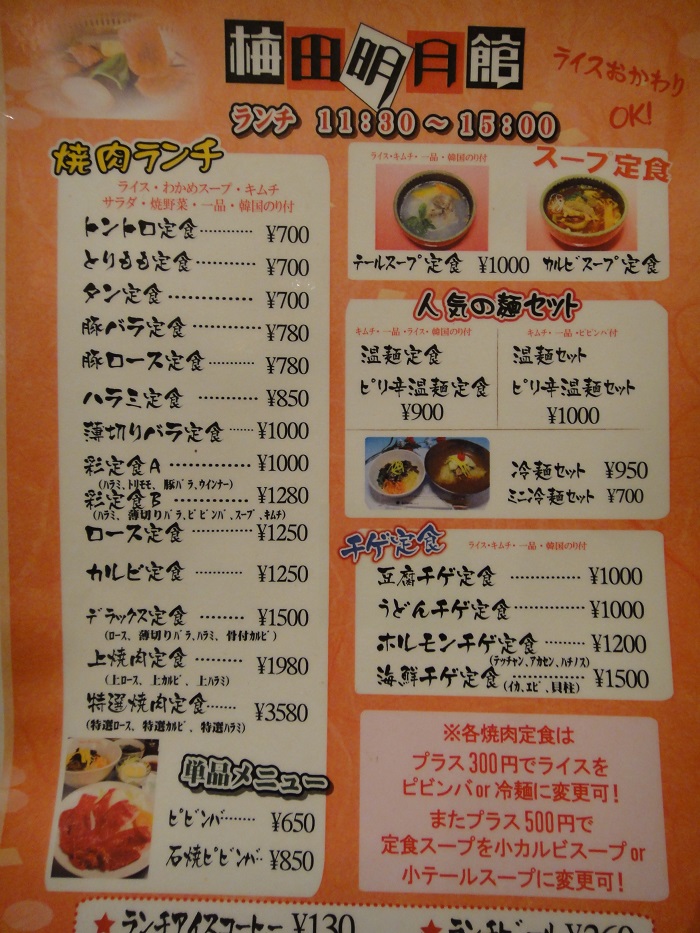 梅田明月館
ライスおかわり
OK!
ランチ 11:30～15:00
焼肉ランチ
ライス・わかめスープ・キムチ
サラダ・焼野菜・一品・韓国のり付
トントロ定食 ¥700
とりもも定食 ¥700
タン定食 ¥700
豚バラ定食 ¥780
豚ロース定食 ¥780
ハラミ定食 ¥850
薄切りバラ定食 ¥1000
彩定食A ¥1000
(ハラミ、トリモモ、豚バラ、ウインナー)
彩定食B ¥1280
(ハラミ、薄切りバラ、ビビンバ、スープ、キムチ)
ロース定食 ¥1250
カルビ定食 ¥1250
デラックス定食 ¥1500
(ロース、薄切りバラ、ハラミ、骨付カルビ)
上焼肉定食 ¥1980
(上ロース、上カルビ、上ハラミ)
特選焼肉定食 ¥3580
(特選ロース、特選カルビ、特選ハラミ)
単品メニュー
ピビンバ ¥650
石焼ピビンバ ¥850
スープ定食
ライス・キムチ・一品・韓国のり付
テールスープ定食 ¥1000 カルビスープ定食
人気の麺セット
キムチ・一品・ライス・韓国のり付
温麺定食
ピリ辛温麺定食
¥900
キムチ・一品・ピビンバ付
温麺セット
ピリ辛温麺セット
¥1000
冷麺セット ¥950
ミニ冷麺セット ¥700
チゲ定食
ライス・キムチ・一品・韓国のり付
豆腐チゲ定食 ¥1000
うどんチゲ定食 ¥1000
ホルモンチゲ定食 ¥1200
(テッチャン、アカセン、ハチノス)
海鮮チゲ定食 (イカ、エビ、貝柱) ¥1500
※各焼肉定食は
プラス300円でライスを
ピビンバor冷麺に変更可!
またプラス500円で
定食スープを小カルビスープor
小テールスープに変更可!
★ランチアイスコーヒー ¥130 ★ランチビール ¥260